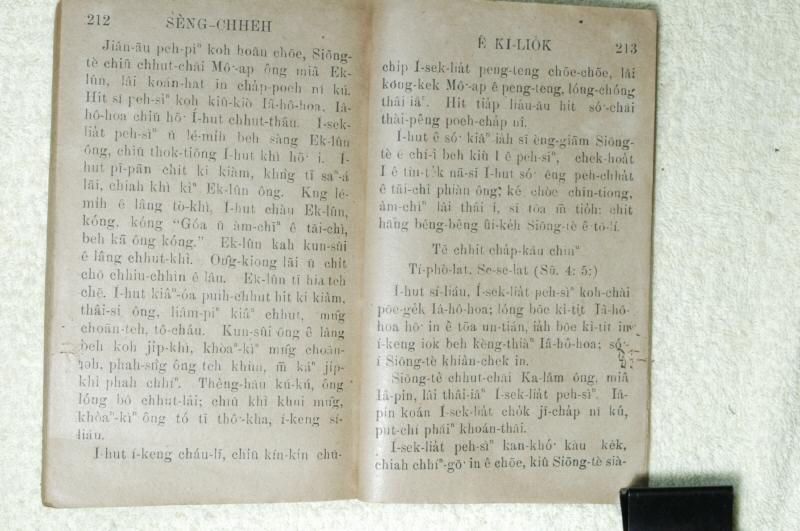 212 SÈNG-CHHEH
Jiân-āu peh-pìⁿ koh hoān chōe, Siōng-
tè chiū chhut-chāi Mô͘-ap ông miâ Ek-
lûn, lâi koán-hat in cha̍p-poeh nî kú.
Hit sî peh-sìⁿ koh kiû-kiò Iâ-hô-hoa. Iâ-
hô-hoa chiū hō͘ Í-hut chhut-thâu. Í-sek-
lia̍t peh-sìⁿ ū lé-mi̍h beh sàng Ek-lûn
ông, chiū thok-tiōng Í-hut khì hō͘ i. Í-
hut pī-pān chi̍t ki kiàm, khǹg tī saⁿ-á
lāi, chiah khì kìⁿ Ek-lûn ông. Kng lé-
mi̍h ê lâng tò-khì, Í-hut chàu Ek-lûn,
kóng, kóng “Góa ū àm-chīⁿ ê tāi-chì,
beh kā ông kóng.” Ek-lûn kah kun-sûi
ê lâng chhut-khì. Ông-kiong lāi ū chi̍t
chō chhiu-chhin ê lâu. Ek-lûn tī hia teh
chē. Í-hut kiâⁿ-óa pui̍h-chhut hit ki kiàm,
thâi-sí ông, liâm-piⁿ kiâⁿ chhut, mn̂g
choân-teh, tô-cháu. Kun-sûi ông ê lâng
beh koh ji̍p-khì, khòaⁿ-kìⁿ mn̂g choân-
teh, phah-sǹg ông teh khùn, m̄ káⁿ ji̍p-
khì phah chhíⁿ. Thèng-hāu kú-kú, ông
lóng bô chhut-lâi; chiū khì khui mn̂g,
khòaⁿ-kìⁿ ông tó tī thô͘-kha, í-keng sí-
liáu.
Í-hut í-keng cháu-lī, chiū kín-kín chū-
Ê KI-LIO̍K 213
chi̍p Í-sek-lia̍t peng-teng chōe-chōe, lâi
kong-kek Mô͘-ap ê peng-teng, lóng-chóng
thâi iâⁿ. Hit tia̍p liáu-āu hit só͘-chāi
thài-pêng poeh-cha̍p nî.
Í-hut ê só͘ kiâⁿ ia̍h sī èng-giām Siōng-
tè ê chí-ì beh kiù I ê peh-sìⁿ, chek-hoa̍t
I ê tùi-te̍k nā-sī Í-hut só͘ ēng peh-chha̍t
ê tāi-chì phiàn ông; kè chòe chīn-tiong,
àm-chīⁿ lâi thâi i, sī tōa m̄ tio̍h: chit
hāng bêng-bêng ûi-kéh Siōng-tè ê tō-lí.
Tē chhit cha̍p-káu chiuⁿ
Tí-phò-lat. Se-se-lat (Sū. 4: 5:)
Í-hut sí-liáu, Í-sek-lia̍t peh-sìⁿ koh-chài
pōe-ge̍k Iâ-hô-hoa; lóng bōe kì-tit Iâ-hô-
hoa hō͘ in ê tōa un-tián, ia̍h bōe kì-tit in
í-keng iok beh kèng-thiàⁿ Iâ-hô-hoa; só͘-
í Siōng-tè khiàn-chek in.
Siōng-tè chhut-chāi Ka-lâm ông, miâ
Iâ-pin, lâi thâi-iâⁿ Í-sek-lia̍t peh-sìⁿ. Iâ-
pin koán Í-sek-lia̍t cho̍k jī-cha̍p nî kú,
put-chí pháiⁿ khoán-thāi.
Í-sek-lia̍t peh-sìⁿ kan-khó͘ kàu ke̍k,
chiah chhíⁿ-gō͘ in ê chōe, kiû Siōng-tè sià-